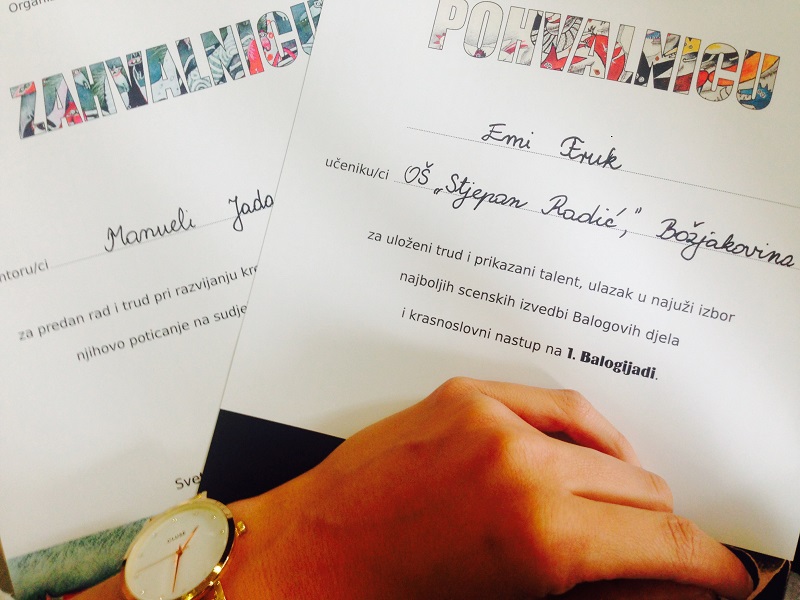 ZAHVALNICU
Manueli Jada
ntoru/ci
za predan rad i trud pri razvijanju kre
njihovo poticanje na sudje
Svet
POHVALNICU
Emi Fruk
učeniku/ci OŠ „Stjepan Radić," Božjakovina
za uloženi trud i prikazani talent, ulazak u najuži izbor
najboljih scenskih izvedbi Balogovih djela
i krasnoslovni nastup na 1. Balogijadi.
CLUSE